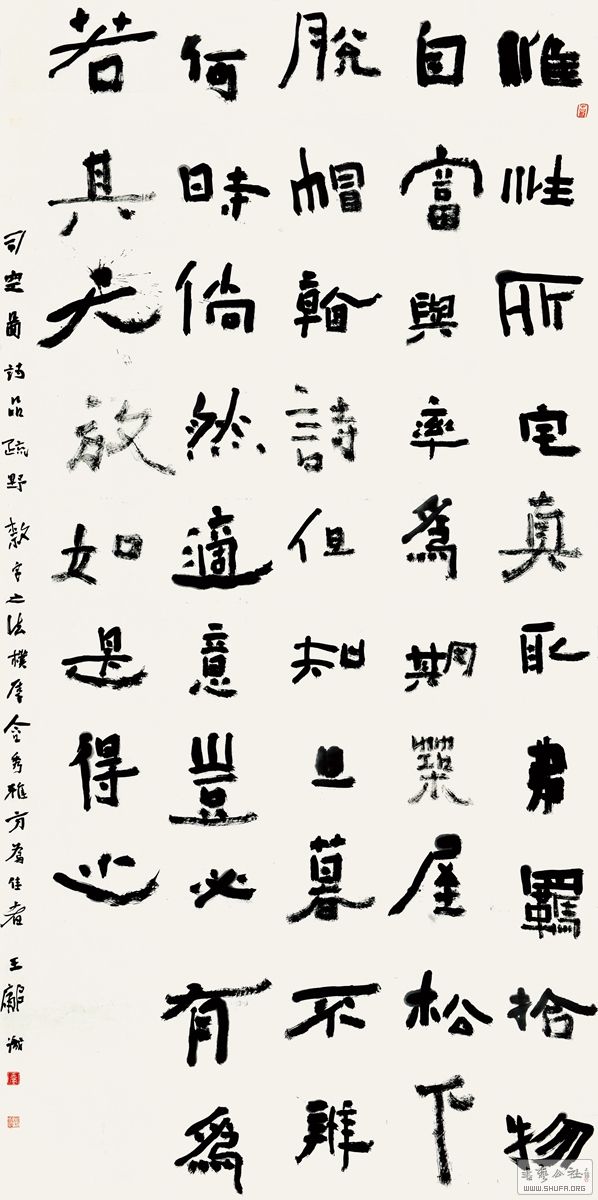 惟性所宅真取弗羈拾物
自富與率爲期築屋松下
脫帽看詩但知旦暮不辨
何時倘然適意豈必有爲
若其天放如是得之
司空圖詩品疏野 隸字之法樸厚含秀雅方為佳者 王 識
書藝公社
WWW.SHUFA.ORG